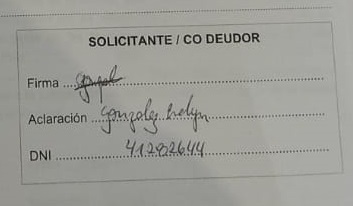 SOLICITANTE / CO DEUDOR
Firma
Aclaración gonzalez
DNI 41282644